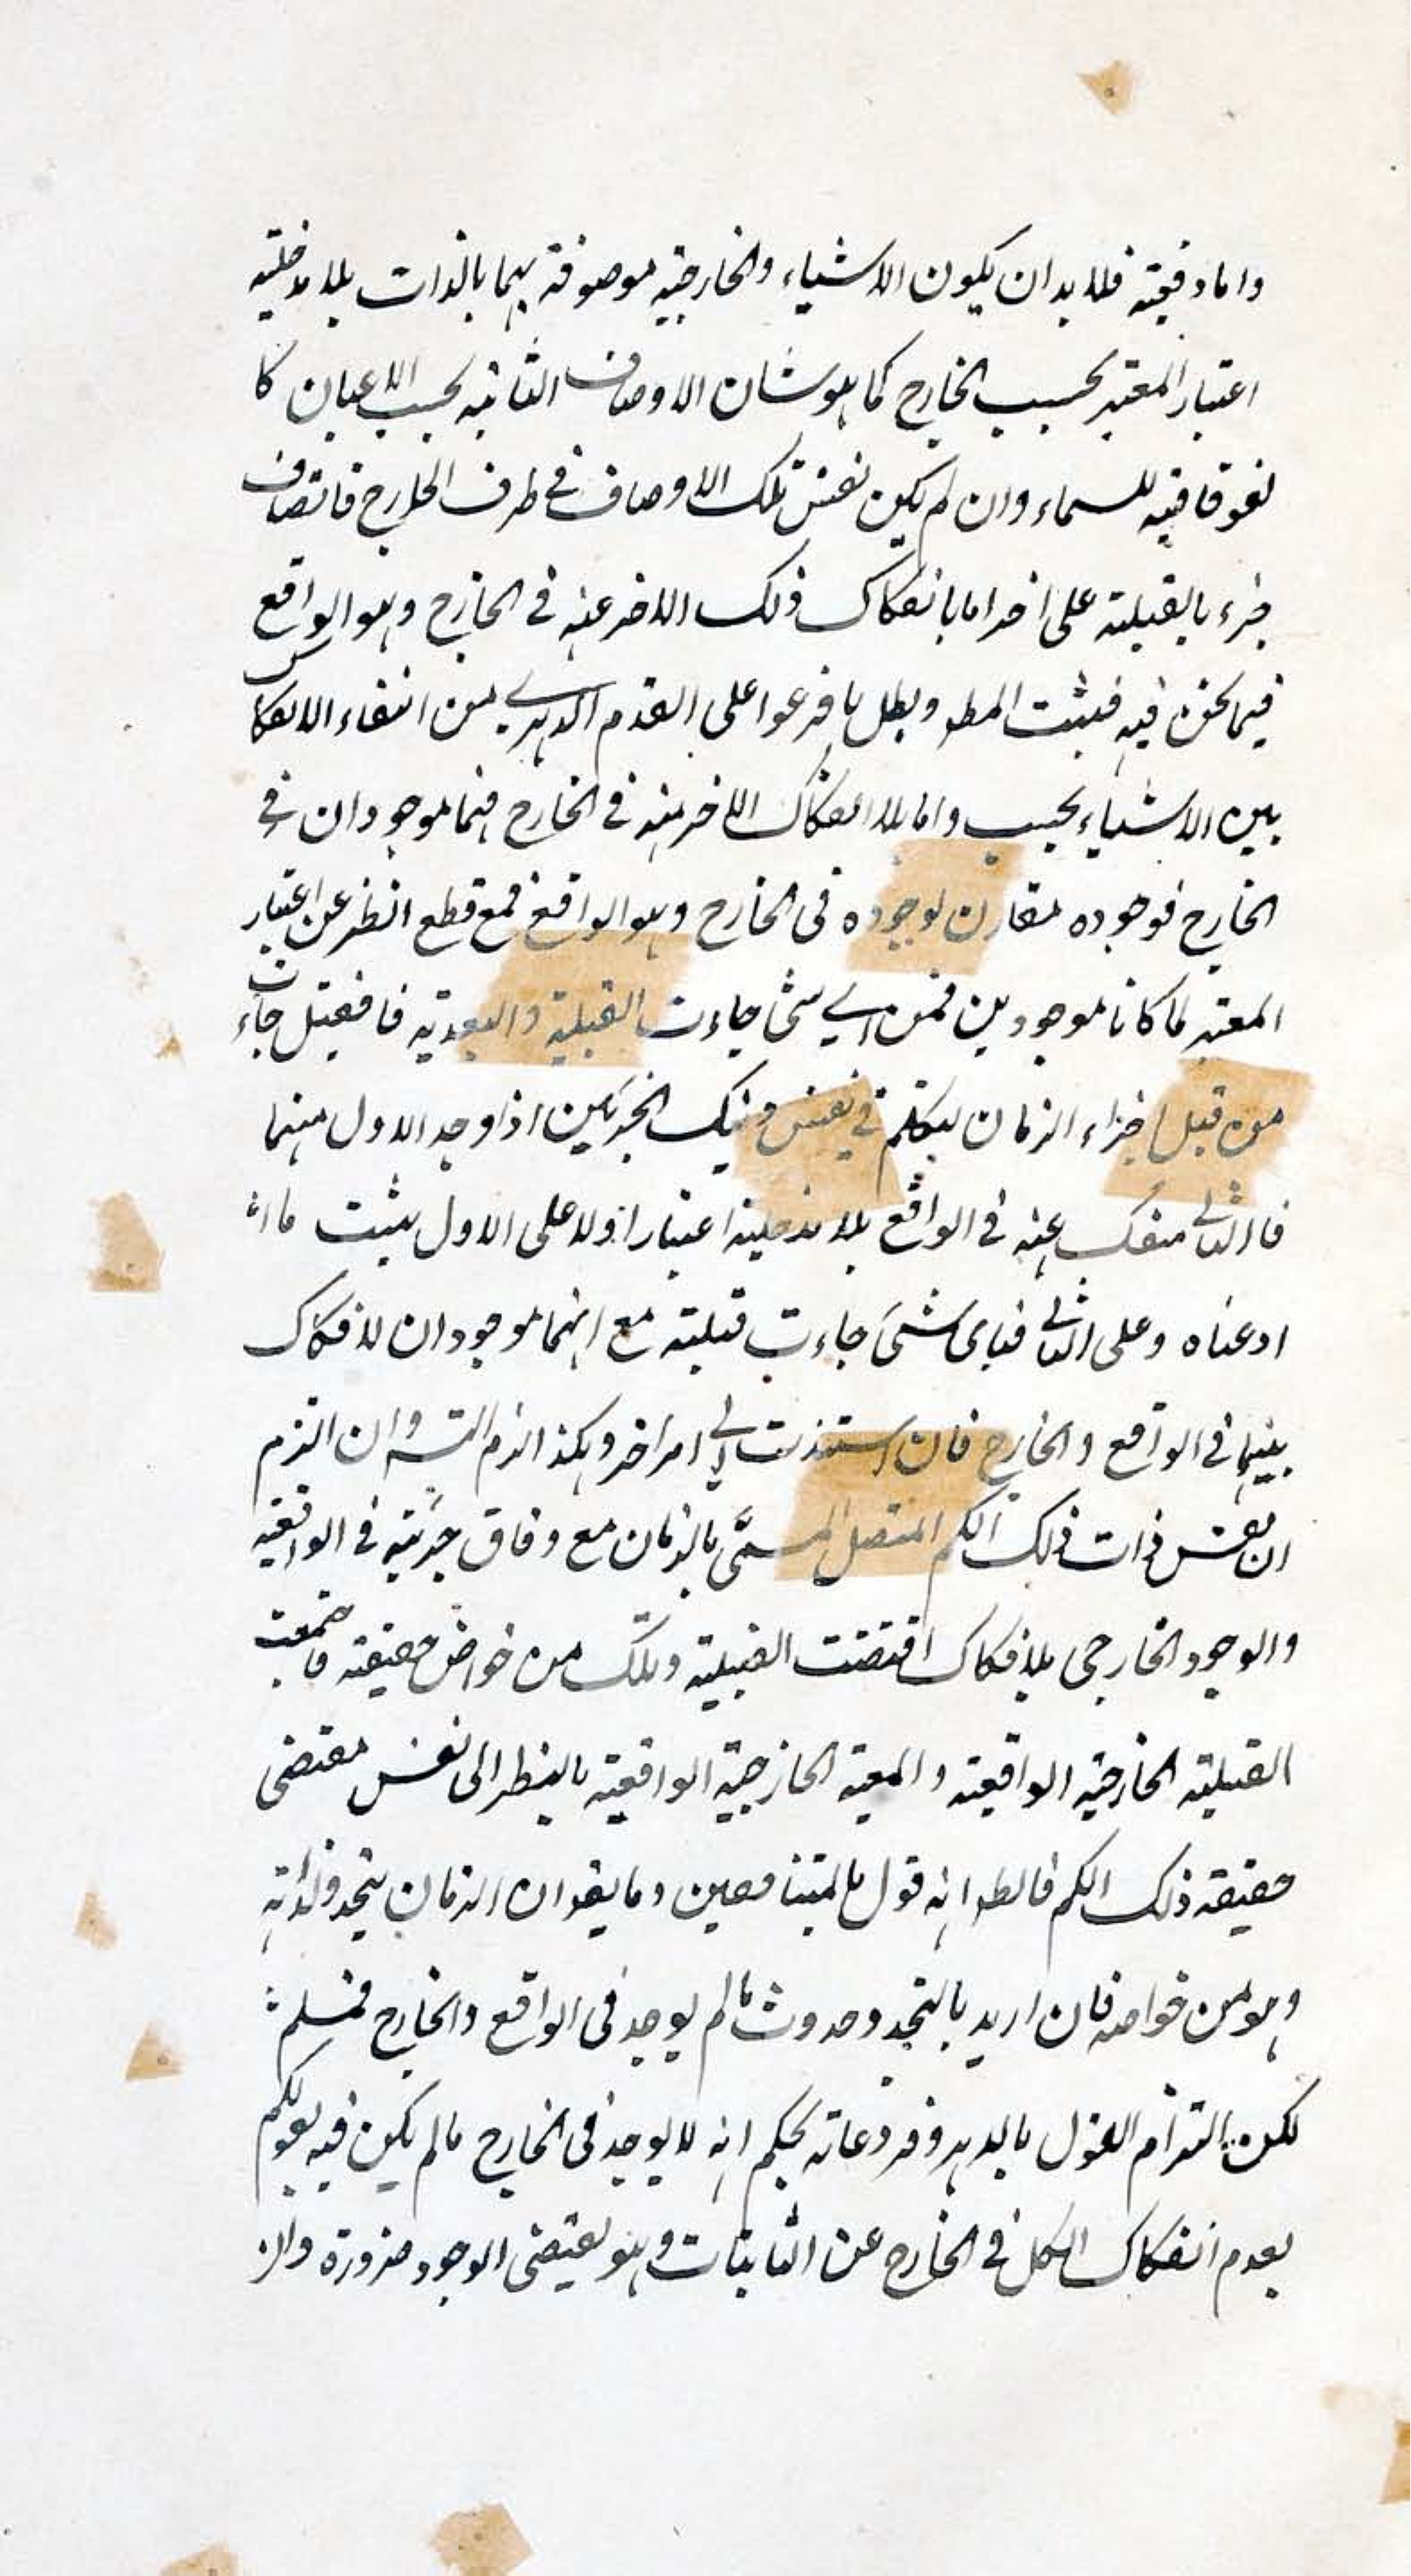 واما دفيته فلا بد ان يكون الاشياء والخارجية موصوفة بهما بالذات بلا مدخلية
اعتبار المعتبر بحسب الخارج كما هو شان الاوصاف الثانية بحسب الاعيان كا
لفوقانية للسماء وان لم يكن نفس تلك الاوصاف في ظرف الخارج فاتصاف
جزء بالقبلية على اخر اما بانفكاك ذلك الاخر عنه في الخارج وهو الواقع
فيما نحن فيه فيثبت المط وبطل ما فرعوا على القدم الدهري من انتفاء الانفكاك
بين الاشياء بحسبه واما بلا انفكاك الاخر منه في الخارج فهما موجودان في
الخارج فوجوده مقارن لوجوده في الخارج وهو الواقع فمع قطع النظر عن اعتبار
المعتبر لما كانا موجودين فمن اي شئ جاءت القبلية والبعدية فان قيل جاءت
من قبل اجزاء الزمان لتكلم في نفس ذينك الجزئين اذا وجد الاول منهما
فالثاني منفك عنه في الواقع بلا مدخلية اعتبار اولا على الاول يثبت ما
ادعناه وعلى الثاني فباى شئ جاءت قبليته مع انهما موجودان لا فكاك
بينهما في الواقع والخارج فان استندت الى امر اخر وهكذا لزم التسه وان التزم
ان نفس ذات ذلك الكم المتصل المسمّى بالزمان مع وفاق جزئيه في الواقعية
والوجود الخارجي بلا فكاك اقتضت القبلية وتلك من خواص حقيقته فاجتمعت
القبلية الخارجية الواقعية والمعية الخارجية الواقعية بالنظر الى نفس مقتضى
حقيقة ذلك الكم فالظ انه قول بالمتناقضين وما يقو ان الزمان يتجدد لذاته
وهو من خواصه فان اريد بالتجدد حدوث ما لم يوجد في الواقع والخارج فمسلم
لكن التزام القول بالدهر وفروعاته يحكم انه لا يوجد في الخارج ما لم يكن فيه لقولكم
بعدم انفكاك الكل في الخارج عن الثابتات وهو يقتضى الوجود ضرورة والز